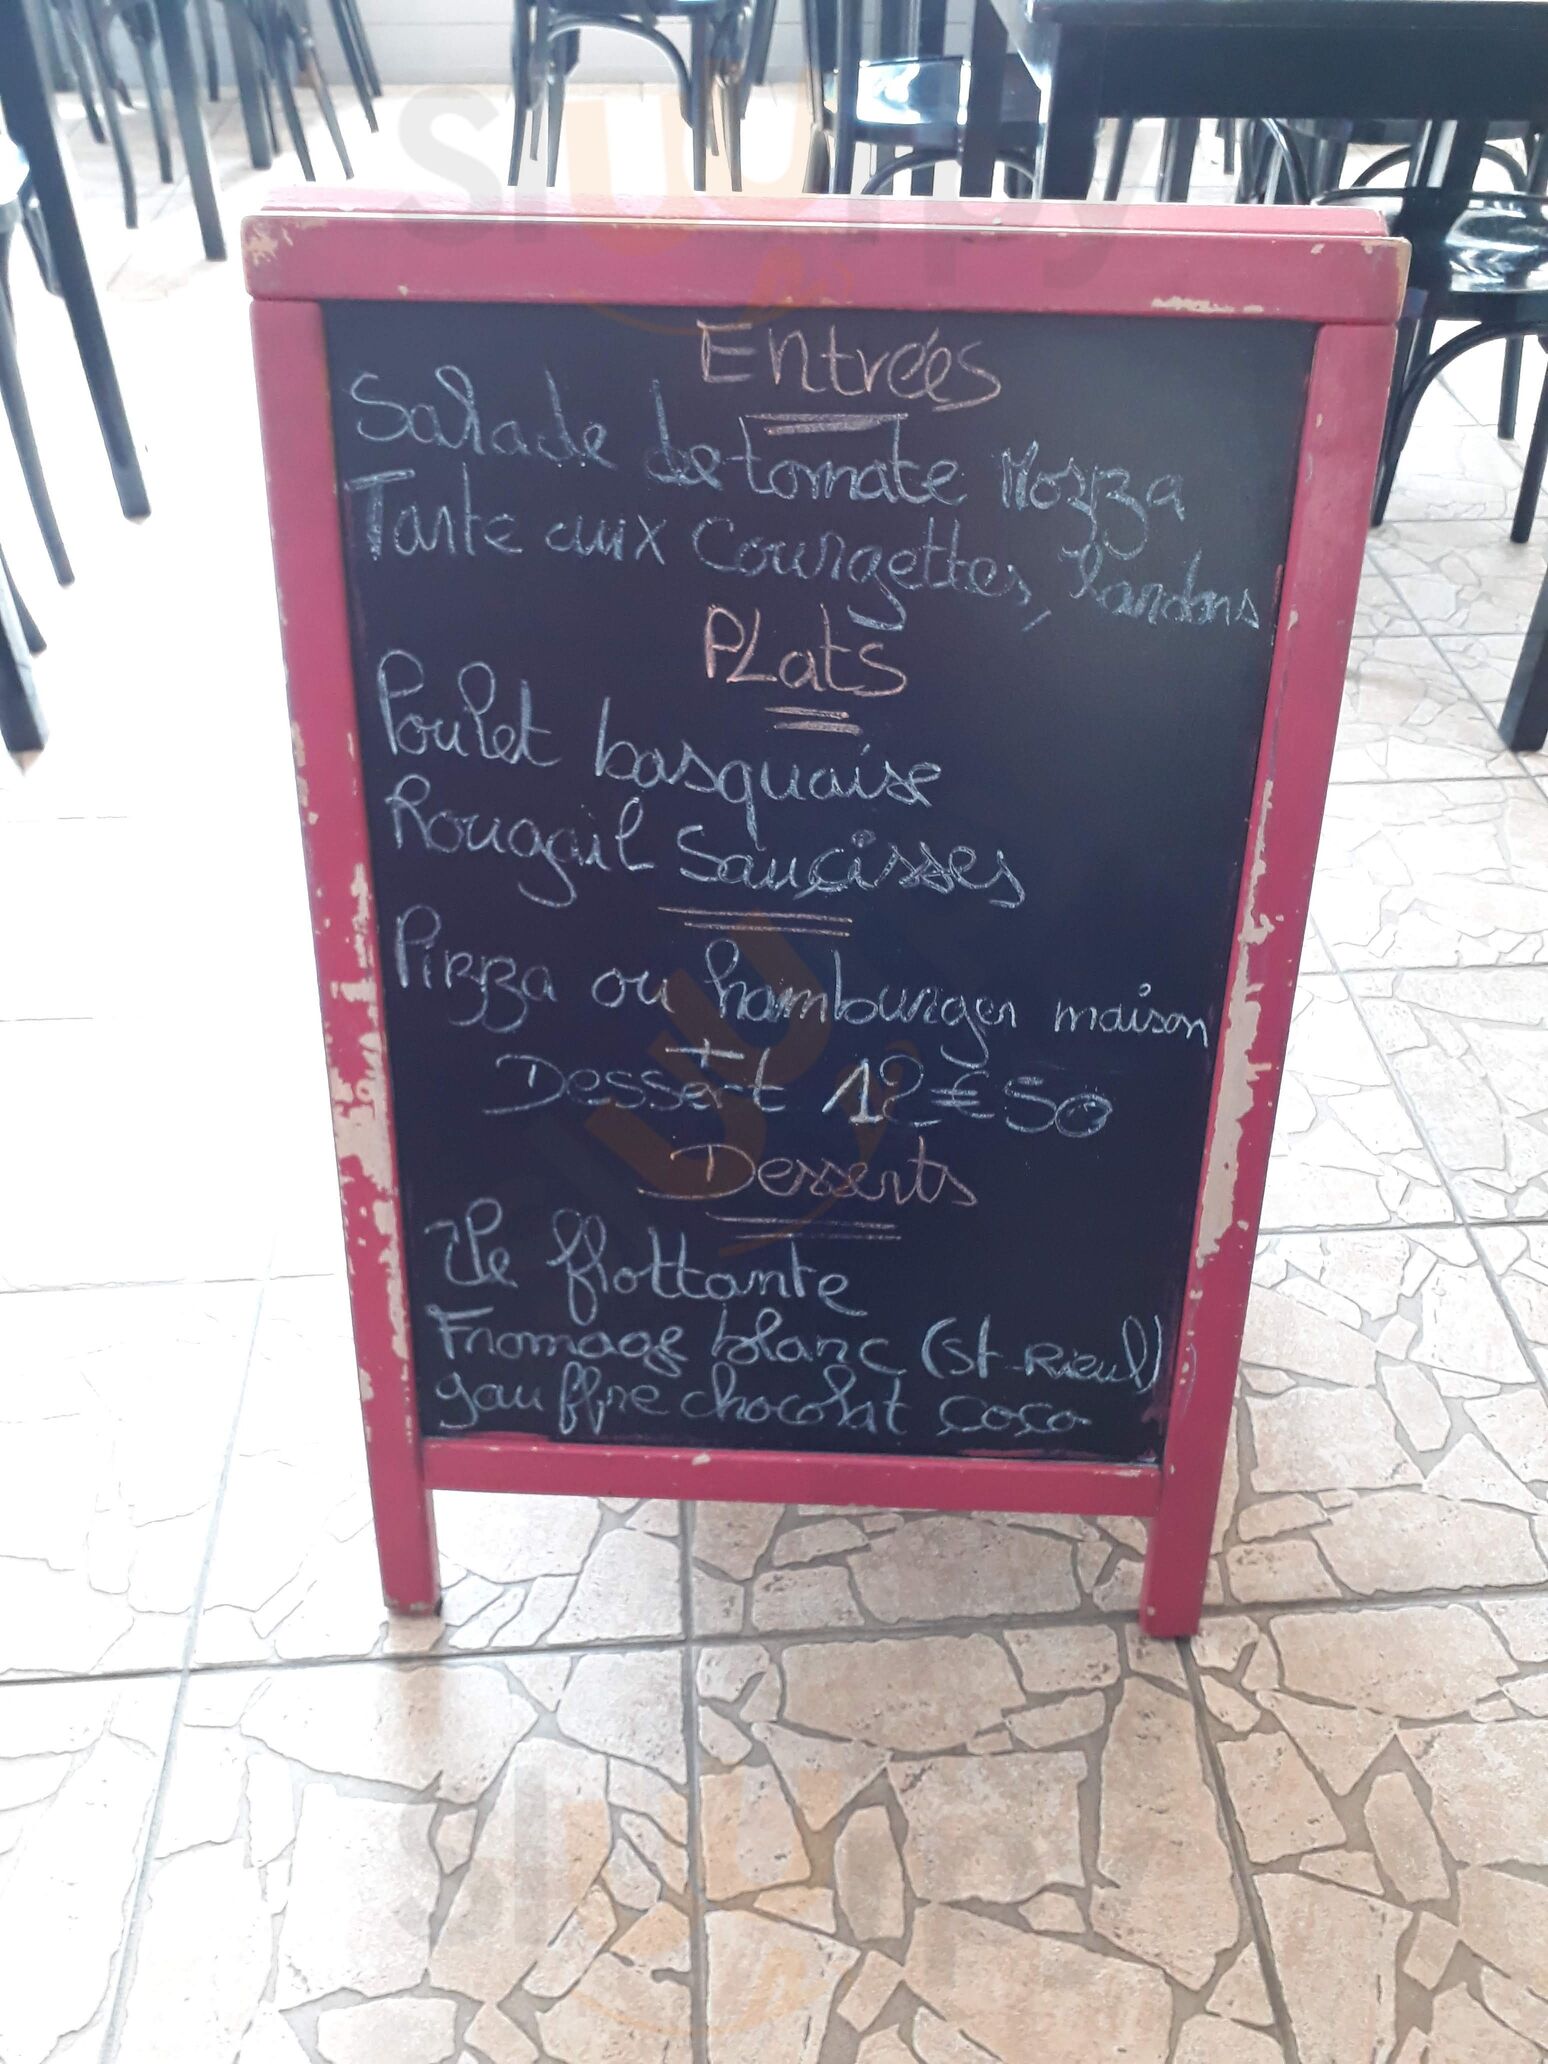 sluurpy
Entrées
Salade de tomate Mozza
Tarte aux Courgettes, lardons
PLats
Poulet basquaise
Rougail Sauçisses
Pizza ou hamburger maison
+
Dessert 12€50
Desserts
Ile flottante
Fromage blanc (St Rieul)
gauffre chocolat çoço
sluurpy